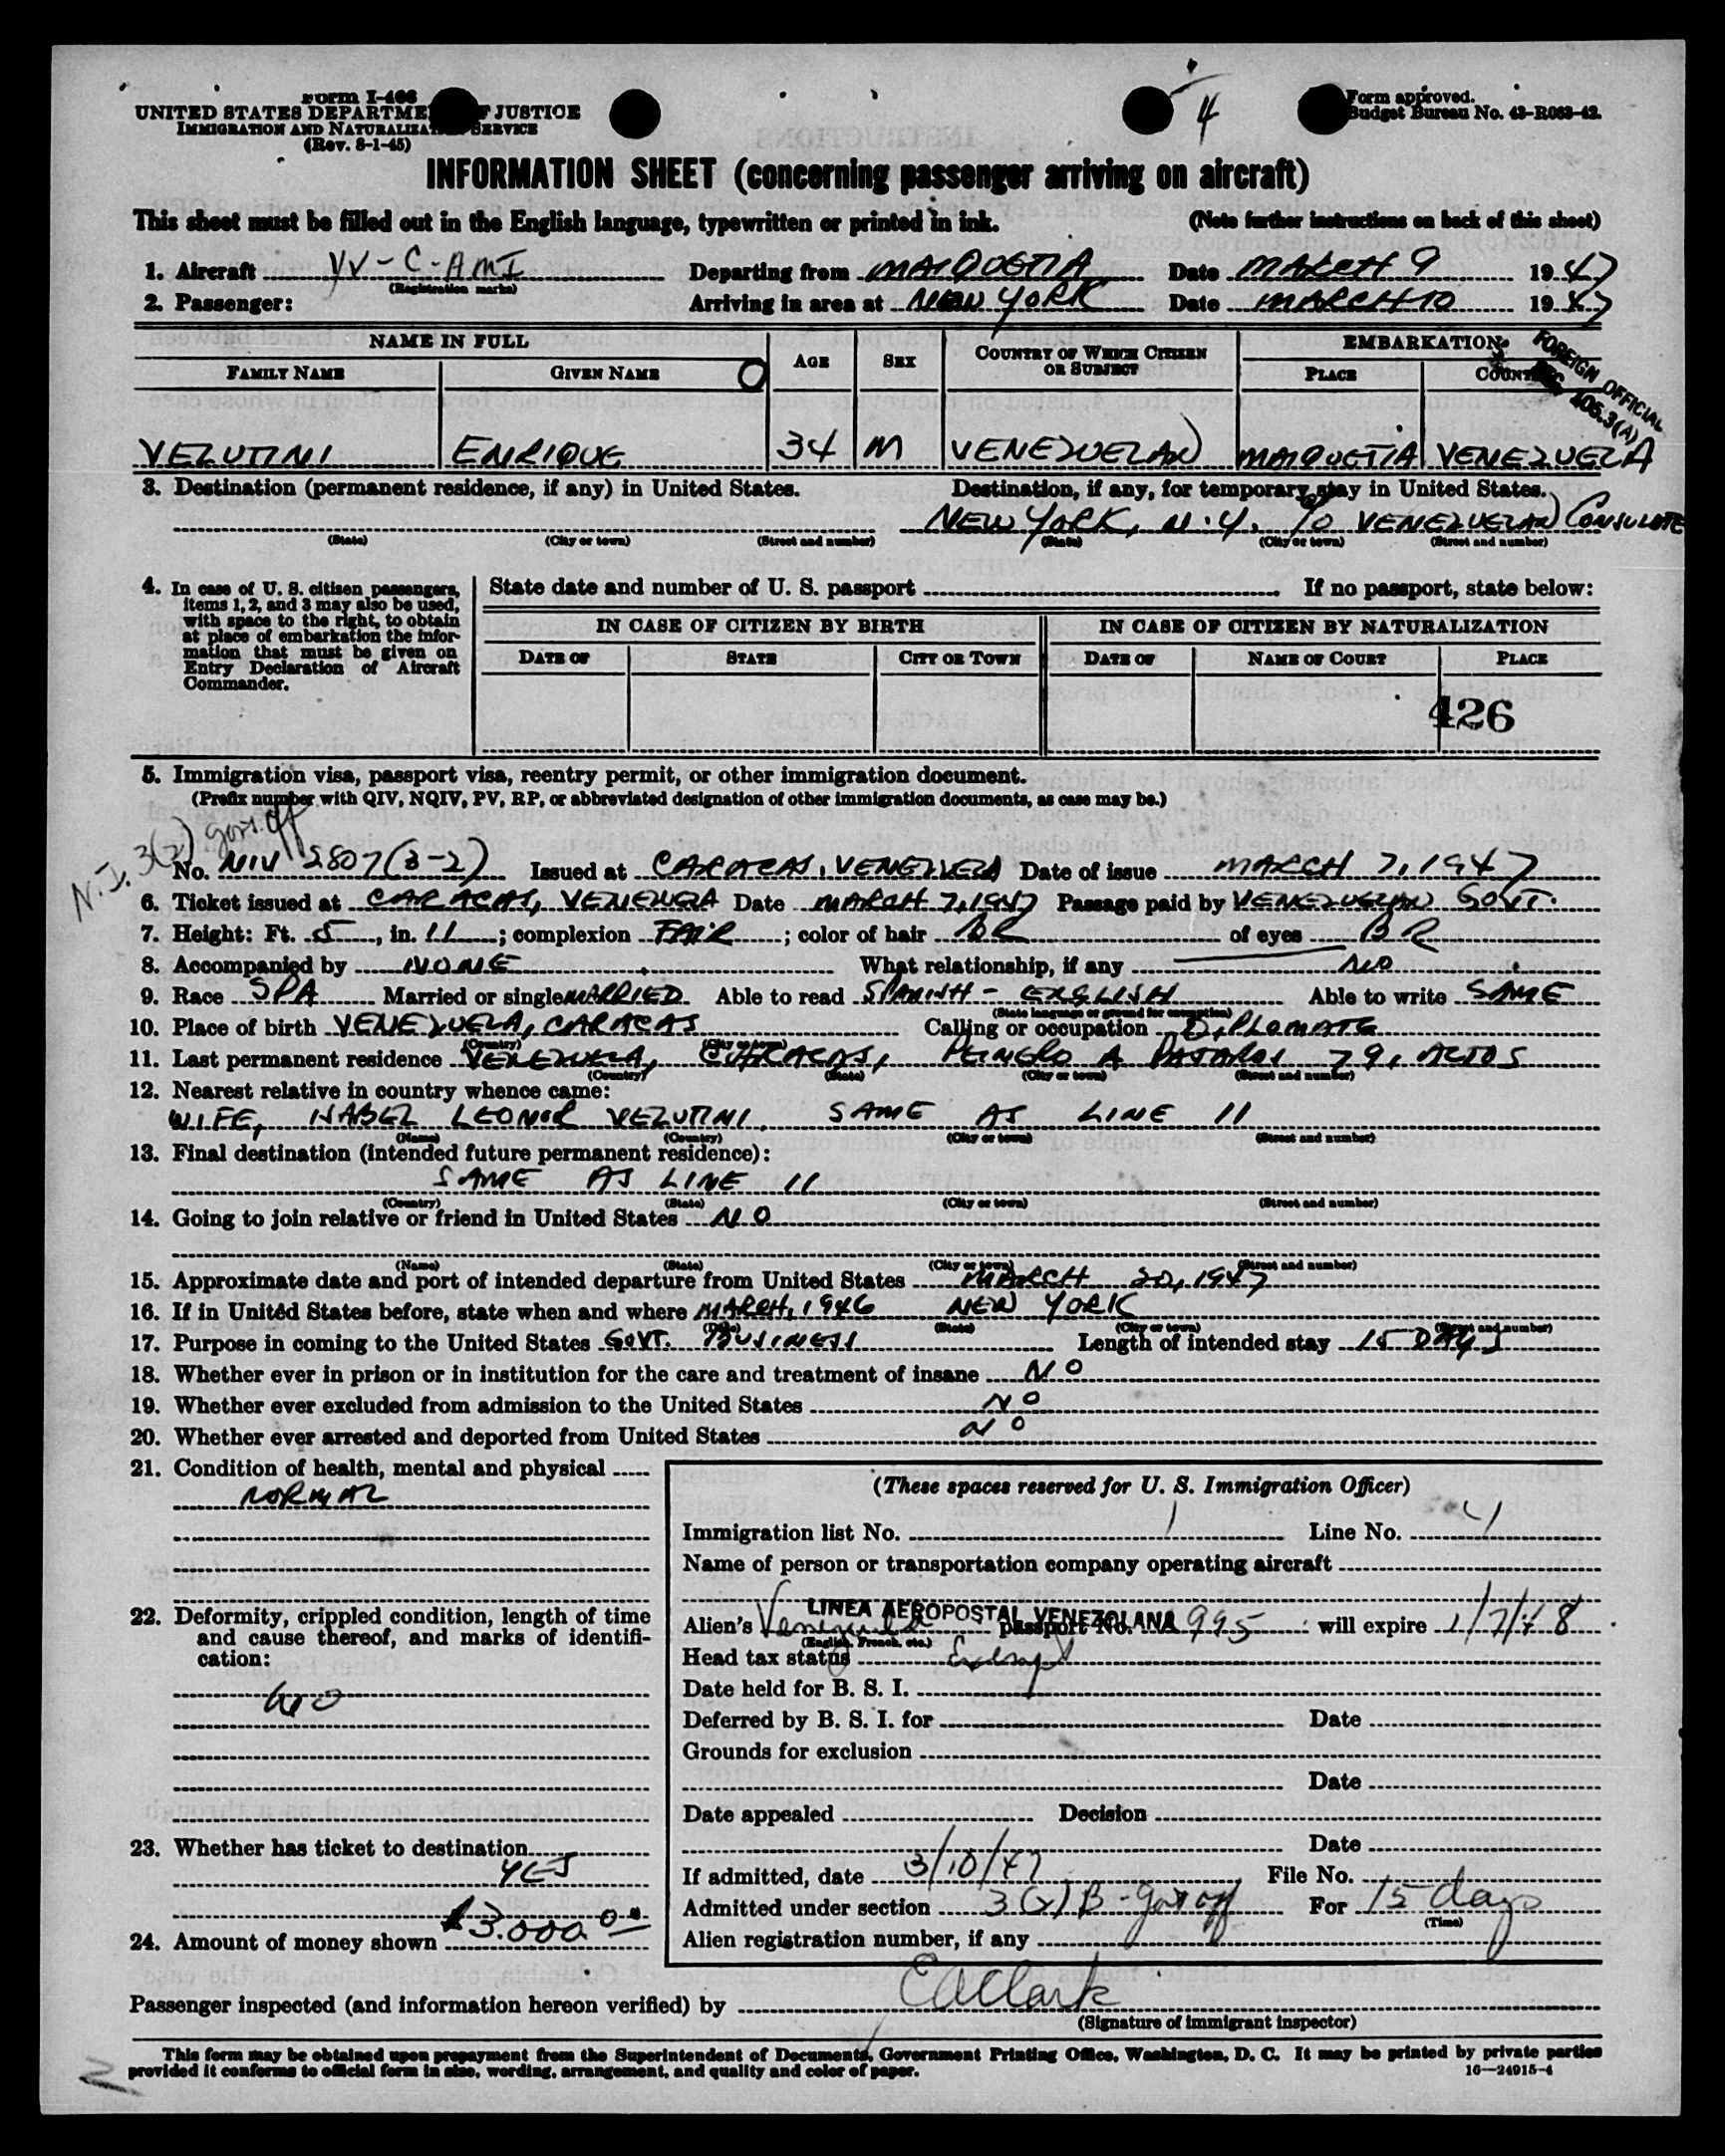 Form I-466
UNITED STATES DEPARTME OF JUSTICE
IMMIGRATION AND NATURALIZAT SERVICE
(Rev. 8-1-45)
4
Form approved.
Budget Bureau No. 43-R063-42.
INFORMATION SHEET (concerning passenger arriving on aircraft)
This sheet must be filled out in the English language, typewritten or printed in ink. (Note further instructions on back of this sheet)
1. Aircraft YV-C-AMI Departing from MAIQUETIA Date MARCH 9 1947
(Registration marks)
2. Passenger: Arriving in area at NEW YORK Date MARCH 10 1947
NAME IN FULL AGE SEX COUNTRY OF WHICH CITIZEN OR SUBJECT EMBARKATION
FAMILY NAME GIVEN NAME PLACE COUNT
FOREIGN OFFICIAL
SEC 105.3(A)
VELUTINI ENRIQUE 34 M VENEZUELAN MAIQUETIA VENEZUELA
3. Destination (permanent residence, if any) in United States. Destination, if any, for temporary stay in United States.
NEW YORK, N.Y. c/o VENEZUELAN CONSULATE
(State) (City or town) (Street and number) (State) (City or town) (Street and number)
4. In case of U. S. citizen passengers, items 1, 2, and 3 may also be used, with space to the right, to obtain at place of embarkation the information that must be given on Entry Declaration of Aircraft Commander.
State date and number of U. S. passport If no passport, state below:
IN CASE OF CITIZEN BY BIRTH IN CASE OF CITIZEN BY NATURALIZATION
DATE OF STATE CITY OR TOWN DATE OF NAME OF COURT PLACE
426
5. Immigration visa, passport visa, reentry permit, or other immigration document.
(Prefix number with QIV, NQIV, PV, RP, or abbreviated designation of other immigration documents, as case may be.)
N.I. 3(2) govt. off
No. NIV 2807 (3-2) Issued at CARACAS, VENEZUELA Date of issue MARCH 7, 1947
6. Ticket issued at CARACAS, VENEZUELA Date MARCH 7, 1947 Passage paid by VENEZUELAN GOVT.
7. Height: Ft. 5, in. 11; complexion FAIR; color of hair BR of eyes BR
8. Accompanied by NONE What relationship, if any NO
9. Race SPA Married or single MARRIED Able to read SPANISH - ENGLISH Able to write SAME
(State language or ground for exemption)
10. Place of birth VENEZUELA, CARACAS Calling or occupation DIPLOMATE
(Country) (City or town)
11. Last permanent residence VENEZUELA, CARACAS, PEINERO A PAJAROS 79, ALTOS
(Country) (State) (City or town) (Street and number)
12. Nearest relative in country whence came:
WIFE, ISABEL LEONOR VELUTINI, SAME AS LINE 11
(Name) (Country) (City or town) (Street and number)
13. Final destination (intended future permanent residence):
SAME AS LINE 11
(Country) (State) (City or town) (Street and number)
14. Going to join relative or friend in United States NO
(Name) (State) (City or town) (Street and number)
15. Approximate date and port of intended departure from United States MARCH 20, 1947
16. If in United States before, state when and where MARCH, 1946 NEW YORK
(Date) (State) (City or town) (Street and number)
17. Purpose in coming to the United States GOVT. BUSINESS Length of intended stay 15 DAYS
18. Whether ever in prison or in institution for the care and treatment of insane NO
19. Whether ever excluded from admission to the United States NO
20. Whether ever arrested and deported from United States NO
21. Condition of health, mental and physical
NORMAL
22. Deformity, crippled condition, length of time and cause thereof, and marks of identification:
NO
23. Whether has ticket to destination
YES
24. Amount of money shown $3.000.00
(These spaces reserved for U. S. Immigration Officer)
Immigration list No. 1 Line No. 4
Name of person or transportation company operating aircraft
LINEA AEROPOSTAL VENEZOLANA
Alien's Venezuela passport No. 995 will expire 1/7/48
(English, French, etc.)
Head tax status Exempt
Date held for B. S. I.
Deferred by B. S. I. for Date
Grounds for exclusion
Date
Date appealed Decision
Date
If admitted, date 3/10/47 File No.
Admitted under section 3(2)B - govt off For 15 days
(Time)
Alien registration number, if any
Passenger inspected (and information hereon verified) by EAClark
(Signature of immigrant inspector)
This form may be obtained upon prepayment from the Superintendent of Documents, Government Printing Office, Washington, D. C. It may be printed by private parties
provided it conforms to official form in size, wording, arrangement, and quality and color of paper. 16—24915-4